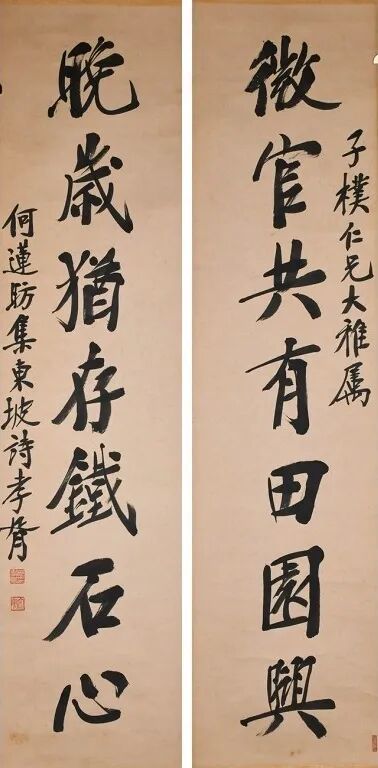 子樸仁兄大雅属
微官共有田園興
晚歲猶存鐵石心
何蓮昉集東坡詩孝胥